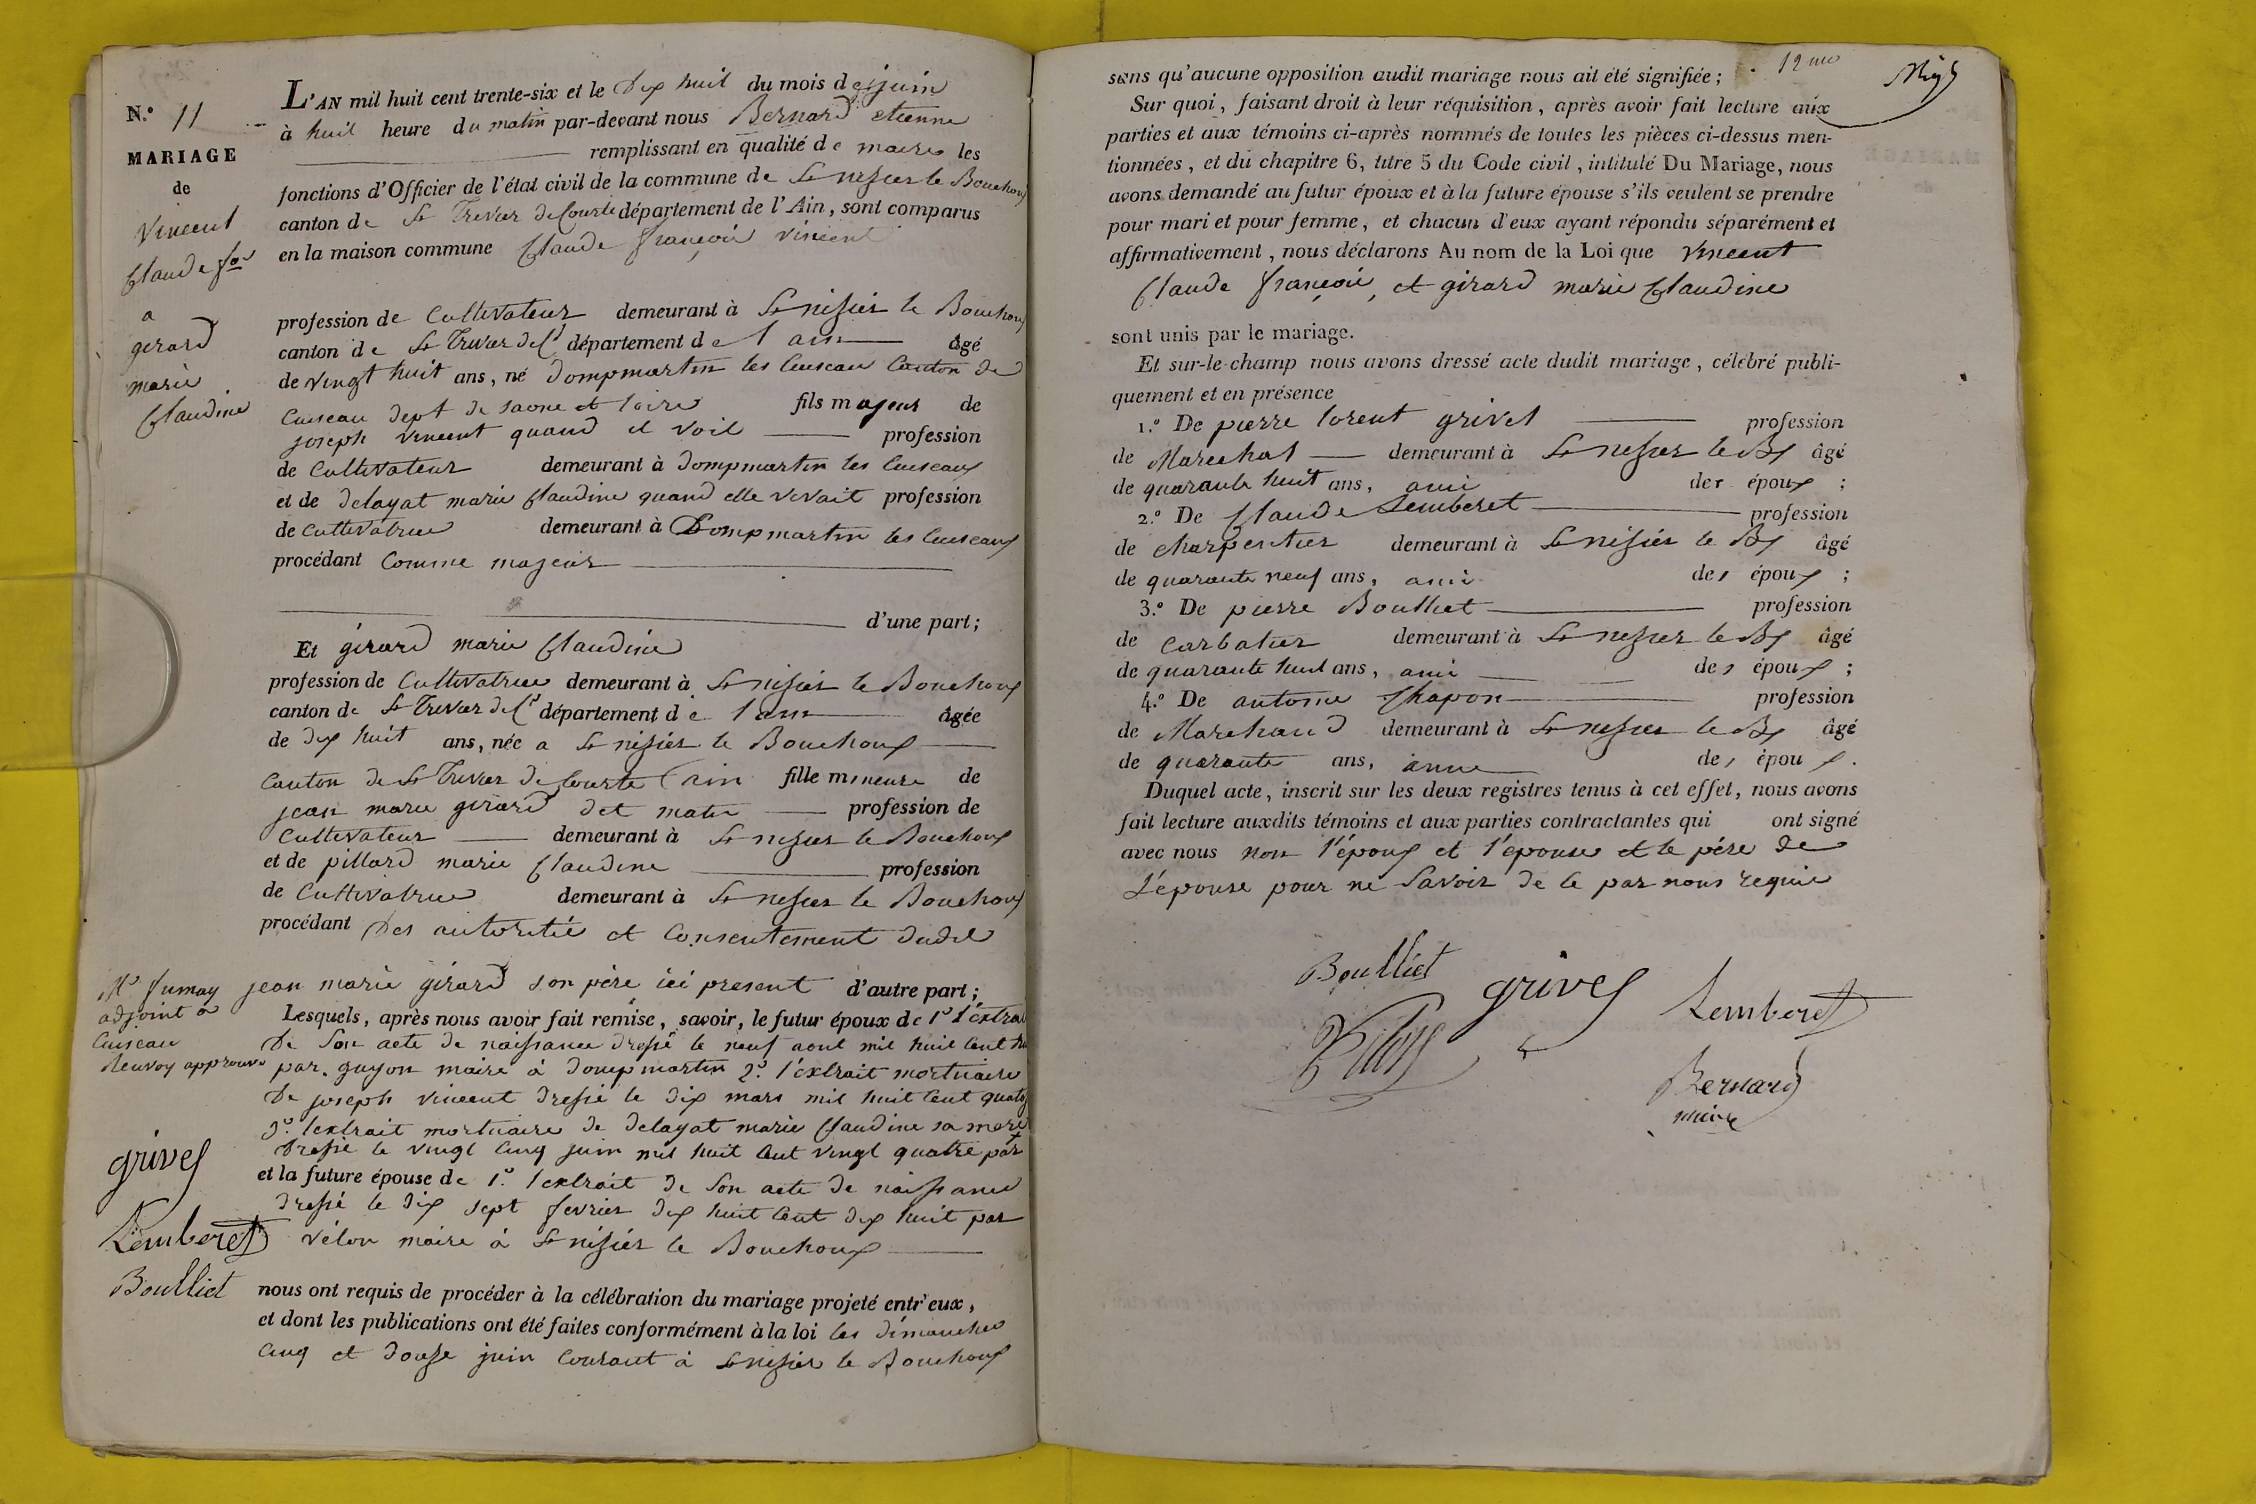 N.° 11
MARIAGE
de
Vincent
Claude fois
a
girard
marie
Claudine
L'AN mil huit cent trente-six et le dix huit du mois de juin
à huit heure du matin par-devant nous Bernard etienne
remplissant en qualité de maire les
fonctions d'Officier de l'état civil de la commune de St nizier le Bouchoux
canton de St Trivier de Courte département de l'Ain, sont comparus
en la maison commune Claude françois vincent
profession de Cultivateur demeurant à St nizier le Bouchoux
canton de St Trivier de Ct département de l ain âgé
de vingt huit ans, né dompmartin les Cuiseau Canton de
Cuiseau dept de saone et loire fils majeur de
joseph vincent quand il vivoit profession
de Cultivateur demeurant à dompmartin les Cuiseaux
et de delayat marie Claudine quand elle vivait profession
de Cultivatrice demeurant à Dompmartin les Cuiseaux
procédant Comme majeur
d'une part;
Et girard marie Claudine
profession de Cultivatrice demeurant à St nizier le Bouchoux
canton de St Trivier de Ct département de l ain âgée
de dix huit ans, née a St nizier le Bouchoux
Canton de St Trivier de Courte (ain fille mineure de
jean marie girard dit matu profession de
Cultivateur demeurant à St nizier le Bouchoux
et de pillard marie Claudine profession
de Cultivatrice demeurant à St nizier le Bouchoux
procédant des autorité et Consentement dudit
jean marie girard son père ici present d'autre part;
Lesquels, après nous avoir fait remise, savoir, le futur époux de 1° l'extrait
de Son acte de naissance dressé le neuf aout mil huit Cent
par guyon maire à dompmartin 2° l'extrait mortuaire
de joseph vincent dressé le dix mars mil huit Cent
3° l'extrait mortuaire de delayat marie Claudine sa mere
dressé le vingt Cinq juin mil huit Cent vingt quatre par
et la future épouse de 1° l'extrait de Son acte de naissance
dressé le dix sept fevrier dix huit Cent dix huit par
vélon maire à St nizier le Bouchoux
nous ont requis de procéder à la célébration du mariage projeté entr'eux,
et dont les publications ont été faites conformément à la loi les dimanches
Cinq et douze juin Courant à St nizier le Bouchoux
Mr fumay
adjoint à
Cuiseau
Renvoy approuvé
grivel
Lemberet
Boulliet
12me
sans qu'aucune opposition audit mariage nous ait été signifiée;
Sur quoi, faisant droit à leur réquisition, après avoir fait lecture aux
parties et aux témoins ci-après nommés de toutes les pièces ci-dessus men-
tionnées, et du chapitre 6, titre 5 du Code civil, intitulé Du Mariage, nous
avons demandé au futur époux et à la future épouse s'ils veulent se prendre
pour mari et pour femme, et chacun d'eux ayant répondu séparément et
affirmativement, nous déclarons Au nom de la Loi que Vincent
Claude françois, et girard marie Claudine
sont unis par le mariage.
Et sur-le-champ nous avons dressé acte dudit mariage, célébré publi-
quement et en présence
1.° De pierre lorent grivel profession
de Marechal demeurant à St nizier le Bx âgé
de quarante huit ans, ami des époux ;
2.° De Claude Lemberet profession
de charpentier demeurant à St nizier le Bx âgé
de quarante neuf ans, ami des époux ;
3.° De pierre Boulliet profession
de Carbatier demeurant à St nizier le Bx âgé
de quarante huit ans, ami des époux ;
4.° De antoine Chapon profession
de Marchand demeurant à St nizier le Bx âgé
de quarante ans, ami des époux.
Duquel acte, inscrit sur les deux registres tenus à cet effet, nous avons
fait lecture auxdits témoins et aux parties contractantes qui ont signé
avec nous non l'époux et l'épouse et le père de
L'épouse pour ne Savoir de ce par nous requis
Boulliet grivel Lemberet
Bernard
maire